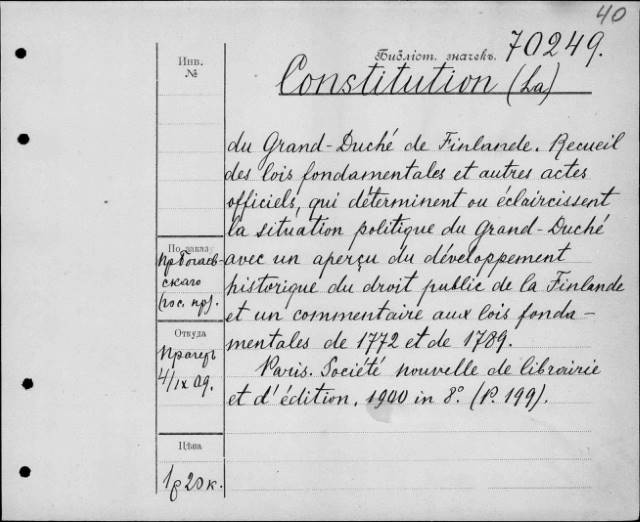 40
Инв.
№
Библіот. значекъ. 70249.
Constitution (La)
du Grand-Duché de Finlande. Recueil
des lois fondamentales et autres actes
officiels, qui déterminent ou éclaircissent
la situation politique du Grand-Duché
avec un aperçu du développement
historique du droit public de la Finlande
et un commentaire aux lois fonda-
mentales de 1772 et de 1789.
Paris. Société nouvelle de librairie
et d'édition, 1900 in 8°. (P. 199).
По заказу
скаго
(гос. пр).
Откуда
Прагеръ
4/IX 09.
Цѣна
1р 20 к.